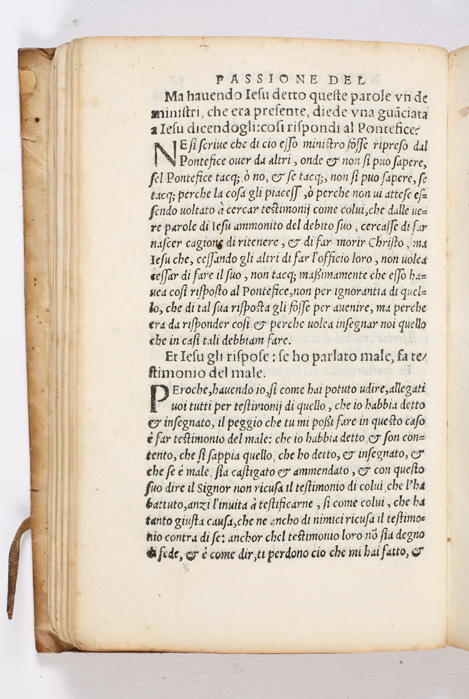 PASSIONE DEL
Ma hauendo Iesu detto queste parole vn de
ministri, che era presente, diede vna guãciata
a Iesu dicendogli: cosi rispondi al Pontefice?
NE si scriue che di cio esso ministro fosse ripreso dal
Pontefice ouer da altri, onde & non si puo sapere,
sel Pontefice tacq; ò no, & se tacq;, non si puo sapere, se
tacq; perche la cosa gli piacess, ò perche non ui attese es-
sendo uoltato à cercar testimonij come colui, che dalle ue-
re parole di Iesu ammonito del debito suo, cercasse di far
nascer cagione di ritenere, & di far morir Christo, ma
Iesu che, cessando gli altri di far l'officio loro, non uolea
cessar di fare il suo, non tacq; maßimamente che esso ha-
uea cosi risposto al Pontefice, non per ignorantia di quel-
lo, che di tal sua risposta gli fosse per auenire, ma perche
era da risponder cosi & perche uolea insegnar noi quello
che in casi tali debbiam fare.
Et Iesu gli rispose: se ho parlato male, fa te-
stimonio del male.
PEroche, hauendo io, si come hai potuto udire, allegati
uoi tutti per testimonij di quello, che io habbia detto
& insegnato, il peggio che tu mi poßi fare in questo caso
è far testimonio del male: che io habbia detto & son con-
tento, che si sappia quello, che ho detto, & insegnato, &
che se è male, sia castigato & ammendato, & con questo
suo dire il Signor non ricusa il testimonio di colui che l'ha
battuto, anzi l'inuita à testificarne, si come colui, che ha
tanto giusta causa, che ne ancho di nimici ricusa il testimo-
nio contra di se: anchor chel testimonio loro nõ sia degno
di fede, & è come dir, ti perdono cio che mi hai fatto, &